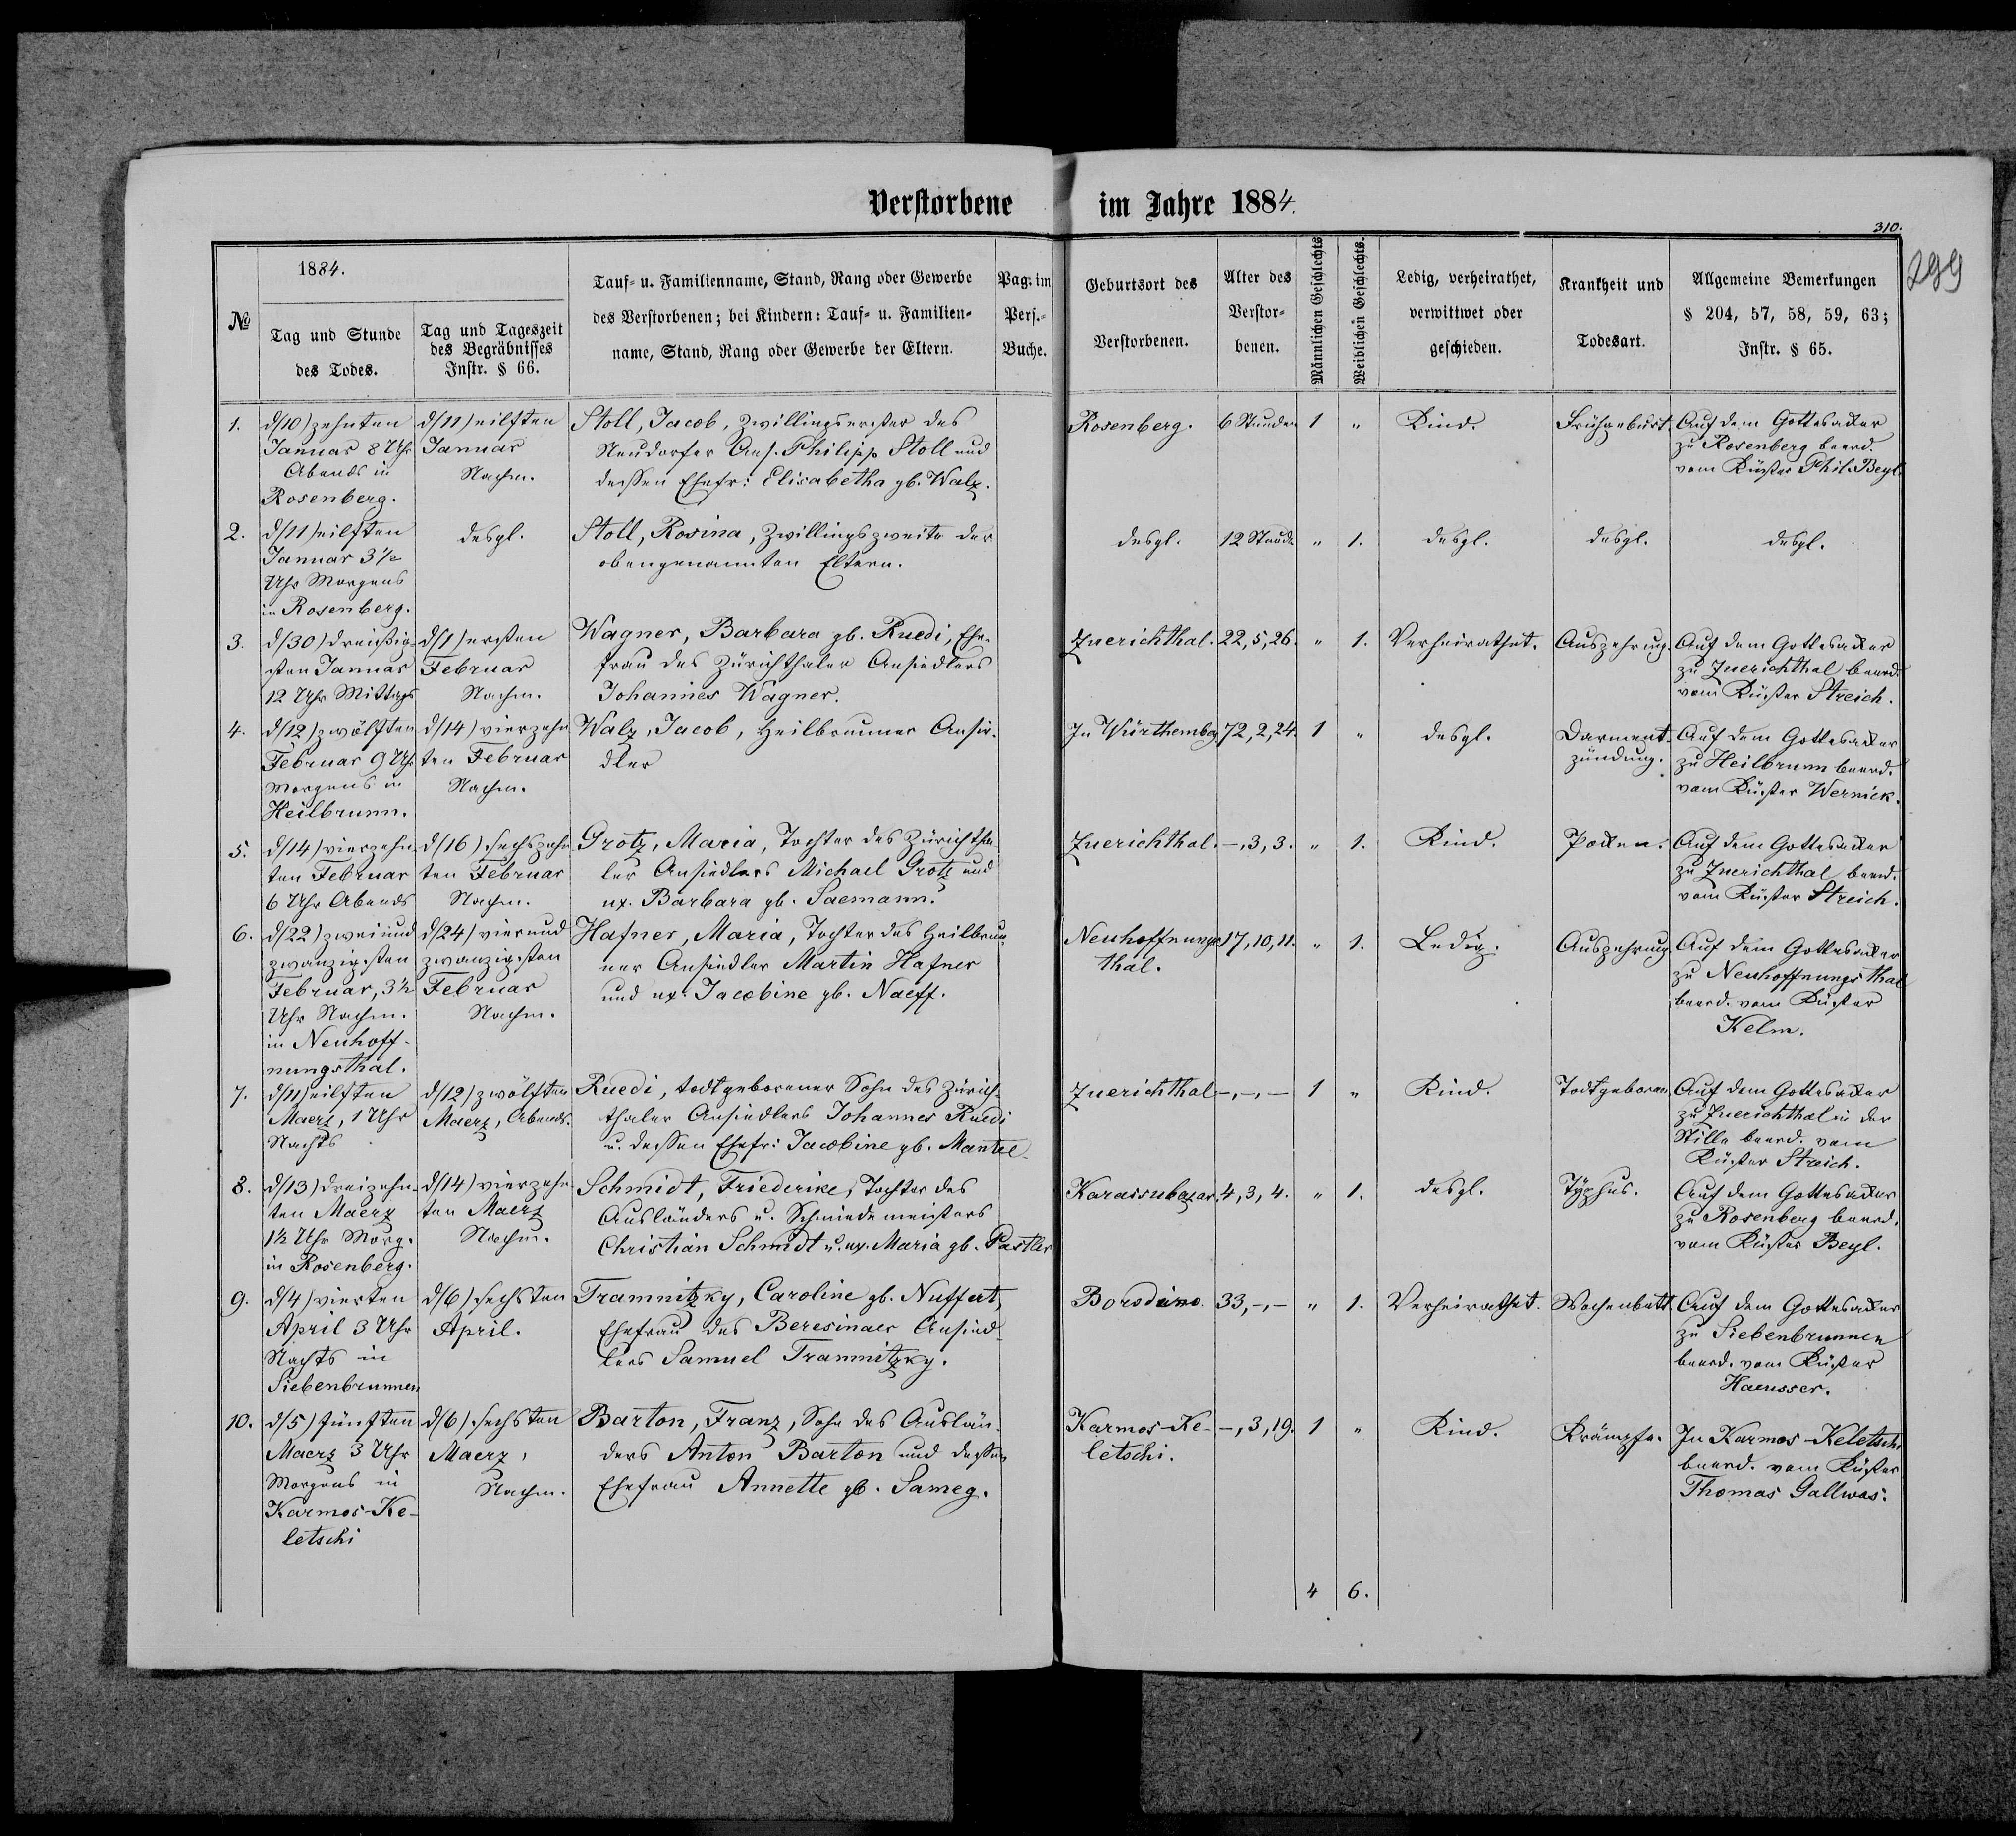 Verstorbene im Jahre 1884.
310.
299
№
1884.
Tag und Stunde des Todes.
Tag und Tageszeit des Begräbnisses Instr. § 66.
Tauf- u. Familienname, Stand, Rang oder Gewerbe des Verstorbenen; bei Kindern: Tauf- u. Familienname, Stand, Rang oder Gewerbe der Eltern.
Pag. im Pers.-Buche.
Geburtsort des Verstorbenen.
Alter des Verstorbenen.
Männlichen Geschlechts
Weiblichen Geschlechts.
Ledig, verheirathet, verwittwet oder geschieden.
Krankheit und Todesart.
Allgemeine Bemerkungen § 204, 57, 58, 59, 63; Instr. § 65.
1.
d/10) zehnten
Januar 8 Uhr
Abends in
Rosenberg.
d/11) eilften
Januar
Nachm.
Stoll, Jacob, Zwillingserster des
Neudorfer Ans. Philipp Stoll und
dessen Ehefr: Elisabetha gb. Walz.
Rosenberg.
6 Stunden
1
"
Kind.
Frühgeburt
Auf dem Gottesacker
zu Rosenberg beerd.
vom Küster Phil. Beyl.
2.
d/11) eilften
Januar 3 1/2
Uhr Morgens
in Rosenberg.
desgl.
Stoll, Rosina, Zwillingszweite der
obengenannten Eltern.
desgl.
12 Stund.
"
1.
desgl.
desgl.
desgl.
3.
d/30) dreißig-
sten Januar
12 Uhr Mittags
d/1) ersten
Februar
Nachm.
Wagner, Barbara gb. Ruedi, Ehe-
frau des Zürichthaler Ansiedlers
Johannes Wagner.
Zuerichthal.
22, 5, 26.
"
1.
Verheirathet.
Auszehrung.
Auf dem Gottesacker
zu Zuerichthal beerd.
vom Küster Streich.
4.
d/12) zwölften
Februar 9 Uhr
Morgens in
Heilbrunn.
d/14) vierzehn
ten Februar
Nachm.
Walz, Jacob, Heilbrunner Ansie-
dler
In Würthemberg
72, 2, 24.
1
"
desgl.
Darment-
zündung.
Auf dem Gottesacker
zu Heilbrunn beerd.
vom Küster Wernick.
5.
d/14) vierzehn
ten Februar
6 Uhr Abends
d/16) sechszehn
ten Februar
Nachm.
Grotz, Maria, Tochter des Zürichtha-
ler Ansiedlers Michael Grotz und
ux. Barbara gb. Saemann.
Zuerichthal.
-, 3, 3.
"
1.
Kind.
Pocken.
Auf dem Gottesacker
zu Zuerichthal beerd.
vom Küster Streich.
6.
d/22) zwei und
zwanzigsten
Februar, 3 1/2
Uhr Nachm.
in Neuhoff-
nungsthal.
d/24) vier und
zwanzigsten
Februar
Nachm.
Hafner, Maria, Tochter des Heilbrun
ner Ansiedler Martin Hafner
und ux. Jacobine gb. Naeff.
Neuhoffnungs
thal.
17, 10, 11.
"
1.
Ledig.
Auszehrung
Auf dem Gottesacker
zu Neuhoffnungsthal
beerd. vom Küster
Kelm.
7.
d/11) eilften
Maerz, 1 Uhr
Nachts
d/12) zwölften
Maerz, Abends.
Ruedi, todtgeborener Sohn des Zürich-
thaler Ansiedlers Johannes Ruedi
u. dessen Ehefr: Jacobine gb. Mantel
Zuerichthal
-, -, -
1
"
Kind.
Todtgeboren
Auf dem Gottesacker
zu Zuerichthal in der
Stille beerd. vom
Küster Streich.
8.
d/13) dreizehn-
ten Maerz
1 1/2 Uhr Morg.
in Rosenberg.
d/14) vierzehn
ten Maerz
Nachm.
Schmidt, Friederike, Tochter des
Ausländers u. Schmiedemeisters
Christian Schmidt u. ux. Maria gb. Pastler
Karassubazar.
4, 3, 4.
"
1.
desgl.
Typhus.
Auf dem Gottesacker
zu Rosenberg beerd.
vom Küster Beyl.
9.
d/4) vierten
April 3 Uhr
Nachts in
Siebenbrunnen
d/6) sechsten
April.
Tramnitzky, Caroline gb. Nuffert,
Ehefrau des Beresinaer Ansied-
lers Samuel Tramnitzky.
Borodino.
33, -, -
"
1.
Verheirathet.
Wochenbett.
Auf dem Gottesacker
zu Siebenbrunnen
beerd. vom Küster
Haeusser.
10.
d/5) fünften
Maerz 3 Uhr
Morgens in
Karmos-Ke-
letschi
d/6) sechsten
Maerz,
Nachm.
Barton, Franz, Sohn des Auslän-
ders Anton Barton und dessen
Ehefrau Annette gb. Sameg.
Karmos-Ke-
letschi.
-, 3, 19.
1
"
Kind.
Krämpfe.
In Karmos-Keletschi
beerd. vom Küster
Thomas Gallwas.
4
6.